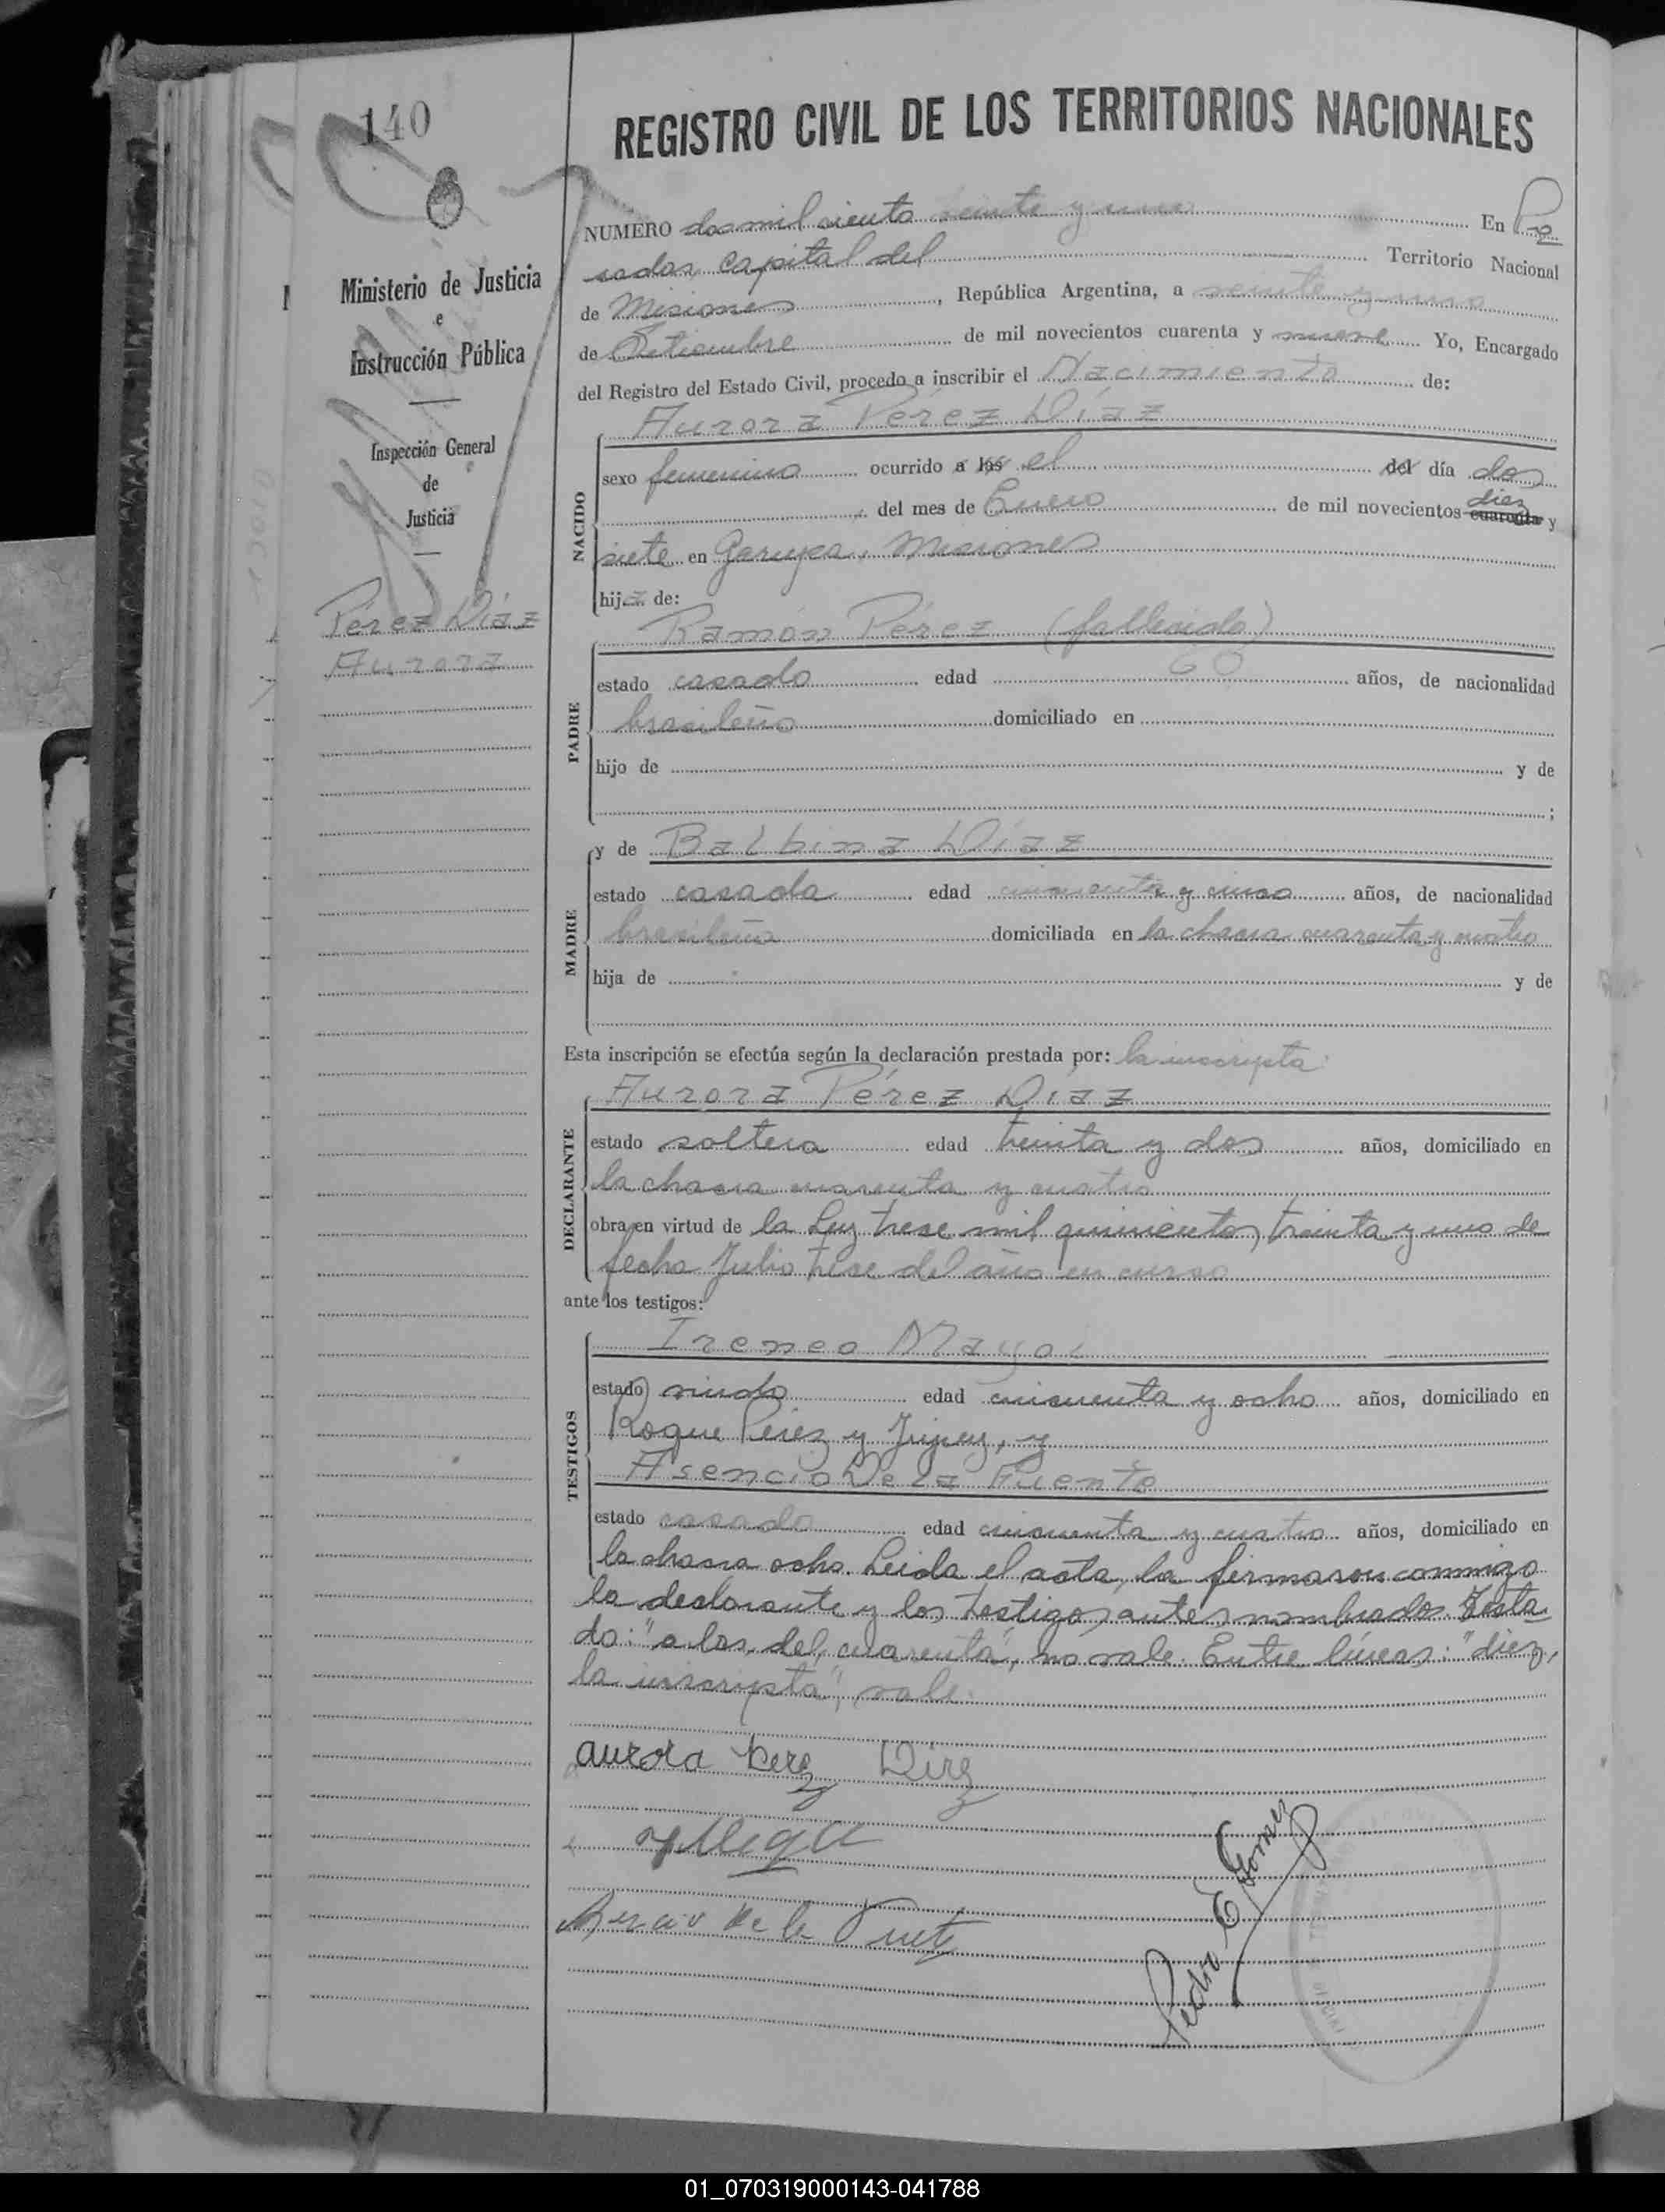 140
REGISTRO CIVIL DE LOS TERRITORIOS NACIONALES
Ministerio de Justicia
e
Instrucción Pública
Inspección General
de
Justicia
Pérez Díaz
Aurora
NUMERO dos mil ciento veinte y uno En Po
sadas capital del Territorio Nacional
de Misiones, República Argentina, a veinte y uno
de Setiembre de mil novecientos cuarenta y nueve Yo, Encargado
del Registro del Estado Civil, procedo a inscribir el Nacimiento de:
Aurora Pérez Díaz
NACIDO
sexo femenino ocurrido a las el del día dos
del mes de Enero de mil novecientos cuarenta diez y
siete en Garupa, Misiones
hija de:
Ramón Pérez (fallecido)
PADRE
estado casado edad 60 años, de nacionalidad
brasileño domiciliado en
hijo de y de
;
y de Balbina Díaz
MADRE
estado casada edad cincuenta y cinco años, de nacionalidad
brasileña domiciliada en la chacra cuarenta y cuatro
hija de y de
Esta inscripción se efectúa según la declaración prestada por: la inscripta
Aurora Pérez Díaz
DECLARANTE
estado soltera edad treinta y dos años, domiciliado en
la chacra cuarenta y cuatro
obra en virtud de la Ley trece mil quinientos treinta y uno de
fecha Julio trece del año en curso
ante los testigos:
Ireneo
TESTIGOS
estado viudo edad cincuenta y ocho años, domiciliado en
Roque Pérez y Jujuy, y
Asencio De La Puente
estado casado edad cincuenta y cuatro años, domiciliado en
la chacra ocho. Leida el acta, la firmaron conmigo
la declarante y los testigos antes nombrados. Testa
do: "a las, del, cuarenta", no vale. Entre líneas: "diez,
la inscripta", vale.
aurora Perez Diaz
de la Puente
Pedro E Gomez
01_070319000143-041788